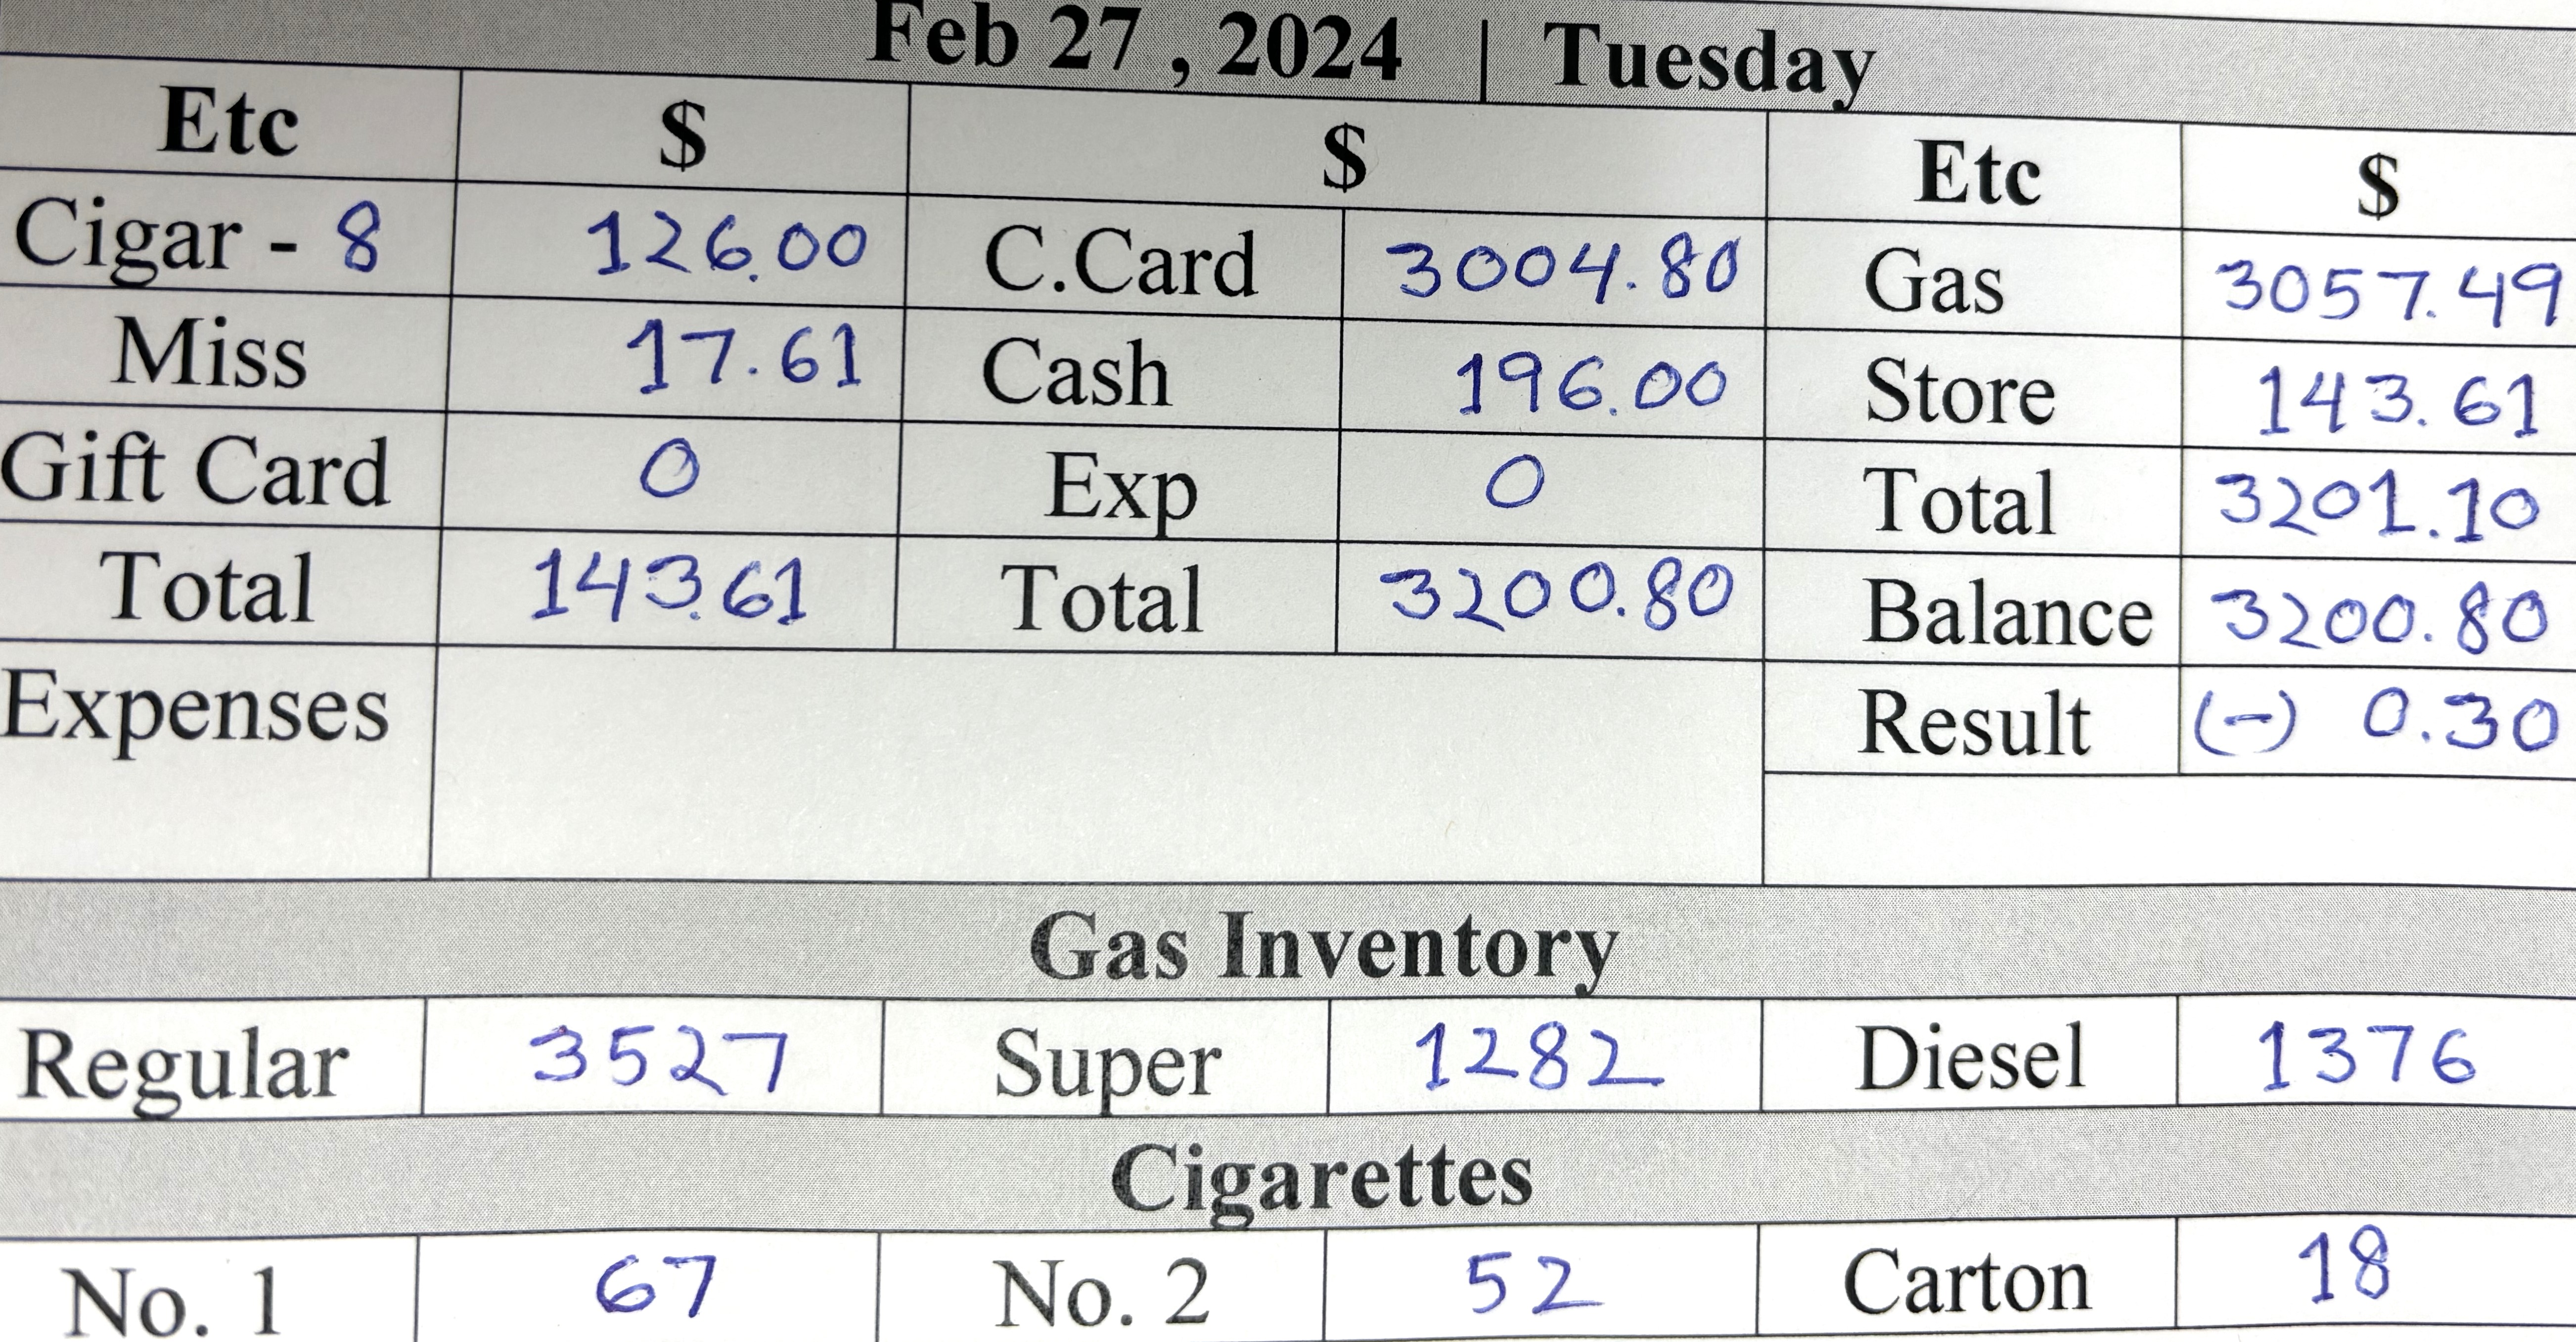 Feb 27 , 2024 | Tuesday
Etc $ $ Etc $
Cigar - 8 126.00 C.Card 3004.80 Gas 3057.49
Miss 17.61 Cash 196.00 Store 143.61
Gift Card 0 Exp 0 Total 3201.10
Total 143.61 Total 3200.80 Balance 3200.80
Expenses Result (-) 0.30
Gas Inventory
Regular 3527 Super 1282 Diesel 1376
Cigarettes
No. 1 67 No. 2 52 Carton 18